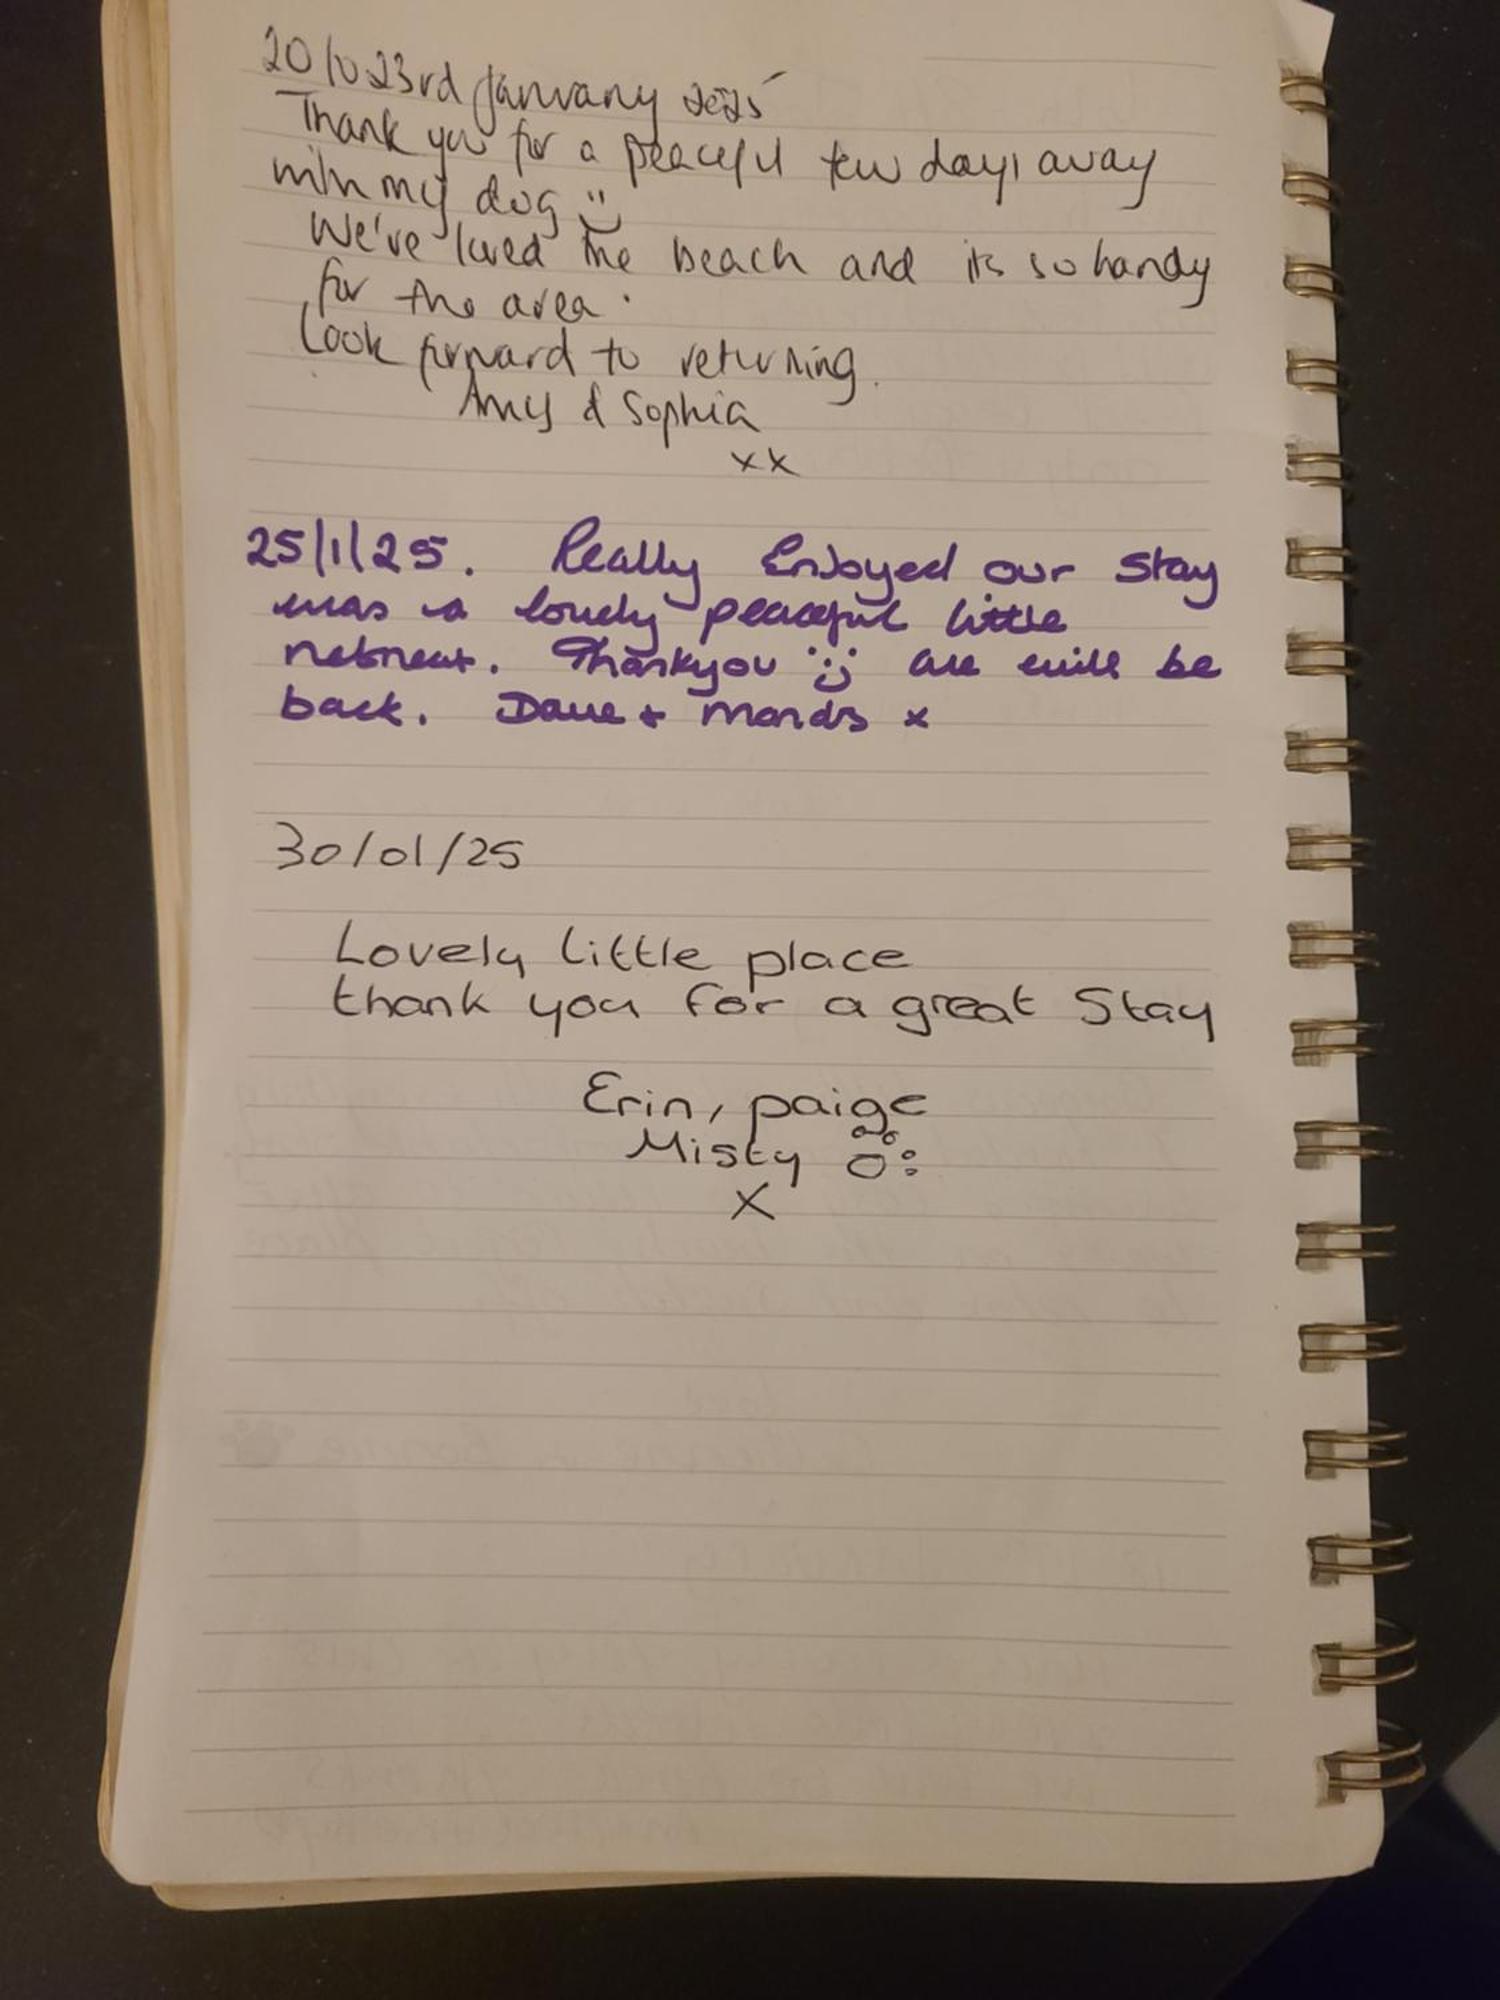 20 to 23rd January 2025
Thank you for a peaceful few days away
with my dog
We've loved the beach and its so handy
for the area.
Look forward to returning.
Amy & Sophia
xx
25/1/25. Really Enjoyed our stay
was a lovely peaceful little
retreat. Thankyou we will be
back. Dave + Mands x
30/01/25
Lovely little place
thank you for a great Stay
Erin, paige
Misty
X